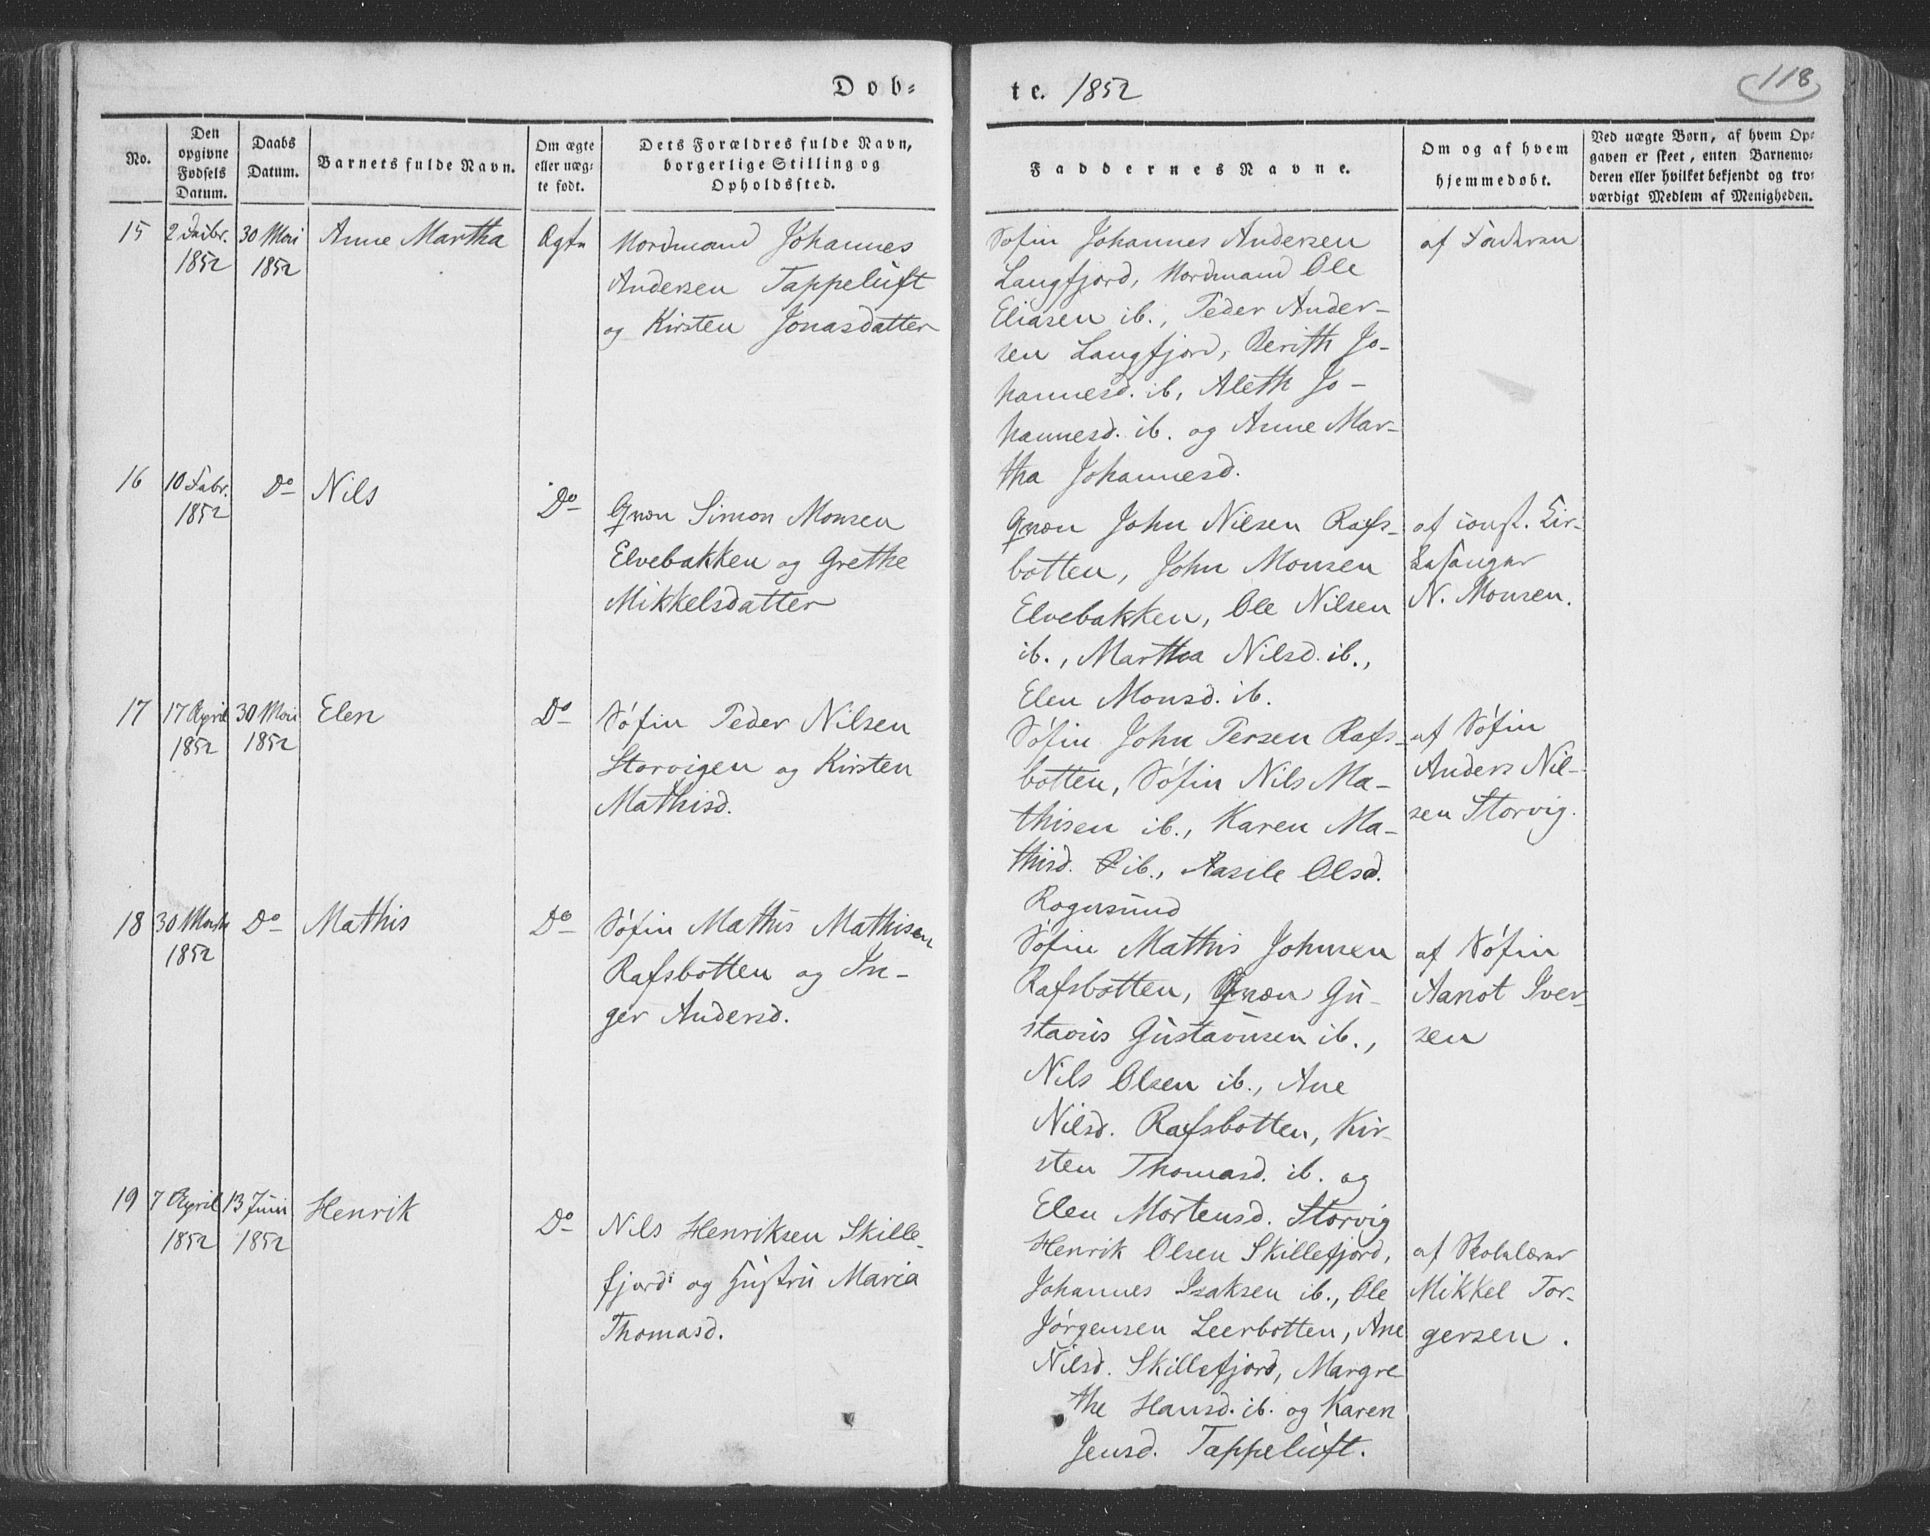 Dob=
te. 1852
118
No.
Den opgivne Fødsels Datum.
Daabs Datum.
Barnets fulde Navn.
Om ægte eller uæg-te født.
Dets Forældres fulde Navn, borgerlige Stilling og Opholdssted.
Faddernes Navne.
Om og af hvem hjemmedøbt.
Ved uægte Børn, af hvem Op-
gaven er skeet, enten Barnemo-
deren eller hvilket bekjendt og tro-
værdigt Medlem af Menigheden.
15
2 Febr.
1852
30 Mai
1852
Anne Martha
Ægte
Nordmand Johannes
Andersen Tappeluft
og Kirsten Jonasdatter
Søfin Johannes Andersen
Langfjord, Nordmand Ole
Eliasen ib., Peder Ander-
sen Langfjord, Berith Jo-
hannesd. ib, Aleth Jo-
hannesd. ib. og Anne Mar-
tha Johannesd.
af Faderen
16
10 Febr.
1852
Do
Nils
Do
Qvæn Simon Monsen
Elvebakken og Grethe
Mikkelsdatter
Qvæn John Nilsen Rafs-
botten, John Monsen
Elvebakken, Ole Nilsen
ib., Martha Nilsd. ib.,
Elen Monsd. ib.
af const. Kir-
kesanger
N. Monsen.
17
17 April
1852
30 Mai
1852
Elen
Do
Søfin Peder Nilsen
Storvigen og Kirsten
Mathisd.
Søfin John Persen Rafs-
botten, Søfin Nils Ma-
thisen ib., Karen Ma-
thisd. ib., Aasele Olsd.
Rognsund
af Søfin
Anders Nil-
sen Storvig.
18
30 Marts
1852
Do
Mathis
Do
Søfin Mathis Mathisen
Rafsbotten og In-
ger Andersd.
Søfin Mathis Johnsen
Rafsbotten, Qvæn Gu-
stavus Gustavusen ib.,
Nils Olsen ib., Ane
Nilsd. Rafsbotten, Kir-
sten Thomasd. ib. og
Elen Mortensd. Storvig
af Søfin
Aanot Iver-
sen
19
7 April
1852
13 Juni
1852
Henrik
Do
Nils Henriksen Skille-
fjord og Hustru Maria
Thomasd.
Henrik Olsen Skillefjord,
Johannes Isaksen ib., Ole
Jørgensen Leerbotten, Ane
Nilsd. Skillefjord, Margre-
the Hansd. ib. og Karen
Jensd. Tappeluft.
af Skolelærer
Mikkel Tor-
gersen.